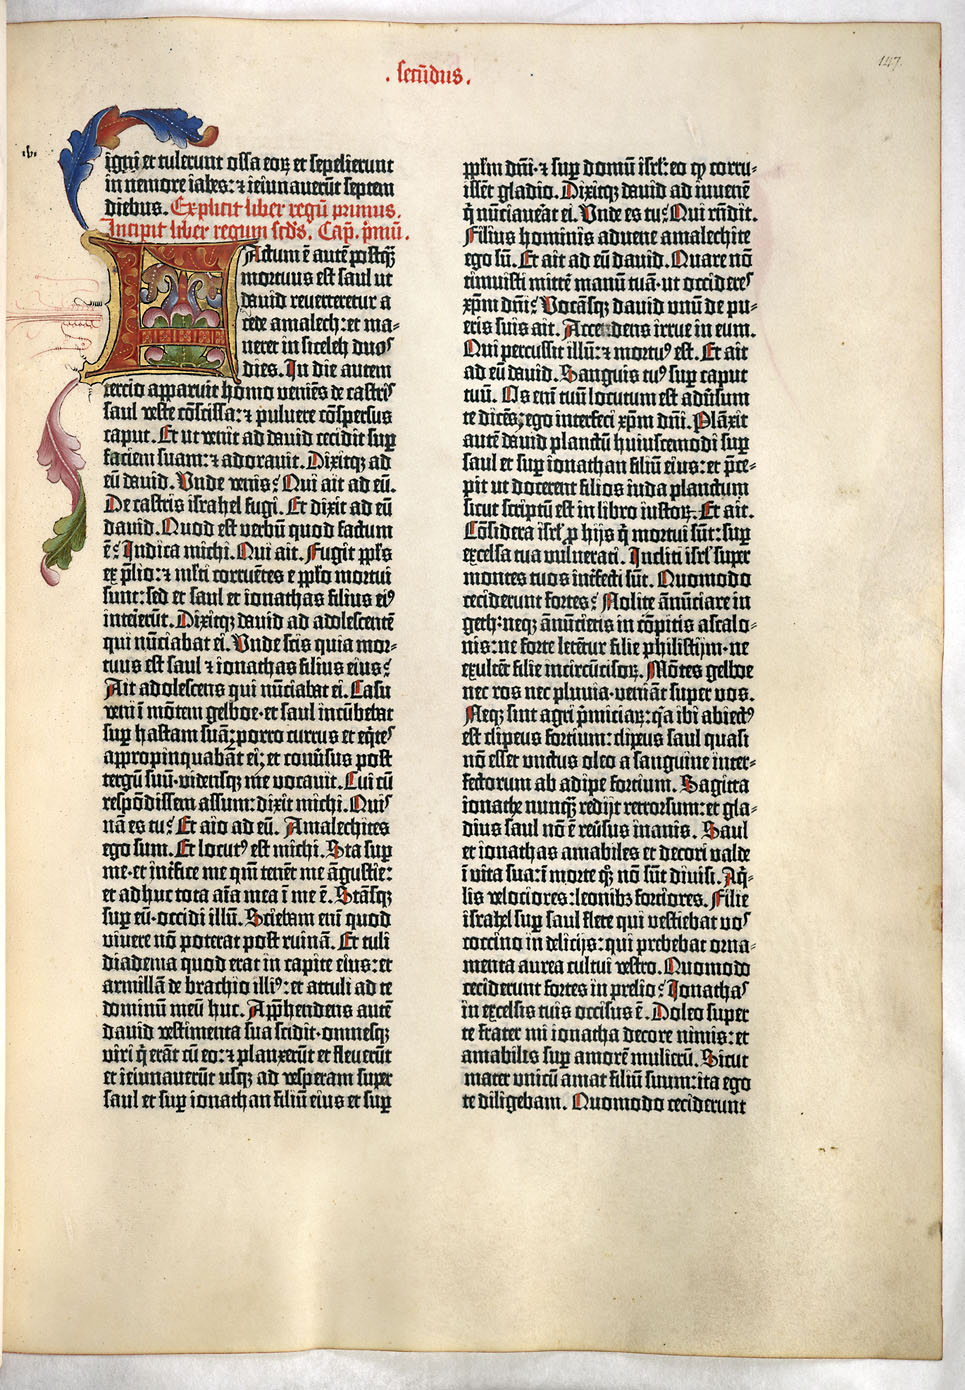 . secūdus .
147.
igni et tulerunt ossa eoꝝ et sepelierunt
in nemore iabes: ⁊ ieiunauerūt septem
diebus. Explicit liber regū primus.
Incipit liber regum scd̄s. Cap̄. p̄mū.
Factum ē autē postq̄ꝫ
mortuus est saul ut
dauid reuerteretur a
cede amalech: et ma-
neret in siceleh duos
dies. In die autem
tercio apparuit homo veniēs de castris
saul veste cōscissa: ⁊ puluere cōspersus
caput. Et ut venit ad dauid cecidit suꝑ
faciem suam: ⁊ adorauit. Dixitqꝫ ad
eū dauid. Vnde venis? Qui ait ad eū.
De castris israhel fugi. Et dixit ad eū
dauid. Quod est verbū quod factum
ē? Indica michi. Qui ait. Fugit ppl̄s
ex p̄lio: ⁊ ml̄ti corruētes e ppl̄o mortui
sunt: sed et saul et ionathas filius eiꝰ
interierūt. Dixitqꝫ dauid ad adolescentē
qui nūciabat ei. Vnde scis quia mor-
tuus est saul ⁊ ionathas filius eius?
Ait adolescens qui nūciabat ei. Casu
veni ī mōtem gelboe · et saul incūbebat
suꝑ hastam suā; porro currus et eq̄tes
appropinquabāt ei; et conūsus post
tergū suū · vidensqꝫ me vocauit. Cui cū
respōdissem assum: dixit michi. Quis
nā es tu? Et aio ad eū. Amalechites
ego sum. Et locutꝰ est michi. Sta suꝑ
me · et int̄fice me qm̄ tenēt me āgustie:
et adhuc tota aīa mea ī me ē. Stāsqꝫ
suꝑ eū · occidi illū. Sciebam enī quod
viuere nō poterat post ruinā. Et tuli
diadema quod erat in capite eius: et
armillā de brachio illiꝰ: et attuli ad te
dominum meū huc. Appr̄hendens autē
dauid vestimenta sua scidit · omnesqꝫ
viri q̄ erāt cū eo: ⁊ planxerūt et fleuerūt
et ieiunauerūt usqꝫ ad vesperam super
saul et suꝑ ionathan filiū eius et suꝑ
ppl̄m dn̄i · ⁊ suꝑ domū isrl̄: eo ꝙ corru-
issēt gladio. Dixitqꝫ dauid ad iuuenē
q̄ nūciauerat ei. Vnde es tu? Qui rn̄dit.
Filius hominis aduene amalechite
ego sū. Et ait ad eū dauid. Quare nō
timuisti mittē manū tuā · ut occideres
xp̄m dn̄i? Vocāsqꝫ dauid unū de pu-
eris suis ait. Accedens irrue in eum.
Qui percussit illū: ⁊ mortuꝰ est. Et ait
ad eū dauid. Sanguis tuꝰ suꝑ caput
tuū. Os enī tuū locutum est adūsum
te dicēs; ego interfeci xp̄m dn̄i. Plāxit
autē dauid planctū huiuscemodi suꝑ
saul et suꝑ ionathan filiū eius: et p̄ce-
pit ut docerent filios iuda planctum
sicut scriptū est in libro iustoꝝ. Et ait.
Cōsidera isrl̄ ꝓ hijs q̄ mortui sūt: suꝑ
excelsa tua vulnerati. Incliti isrl̄ super
montes tuos int̄fecti sūt. Quomodo
ceciderunt fortes? Nolite ānūciare in
geth: neqꝫ ānūcietis in cōpitis ascalo-
nis: ne forte letētur filie philistijm · ne
exultēt filie incircūcisoꝝ. Mōtes gelboe
nec ros nec pluuia · veniāt super vos.
Neqꝫ sint agri p̄miciaꝝ: q̄a ibi abiectꝰ
est clipeus fortium: clipeus saul quasi
nō esset unctus oleo a sanguine inter-
fectorum ab adipe fortium. Sagitta
ionathe nunqꝫ redijt retrorsum: et gla-
dius saul nō ē reūsus inanis. Saul
et ionathas amabiles et decori valde
ī vita sua: ī morte qꝫ nō sūt diuisi. Aq̄-
lis velociores: leonibꝫ forciores. Filie
israhel suꝑ saul flete qui vestiebat vos
coccino in delicijs: qui prebebat orna-
menta aurea cultui vestro. Quomodo
ceciderunt fortes in prelio? Ionathas
in excelsis tuis occisus ē. Doleo super
te frater mi ionatha decore nimis: et
amabilis suꝑ amorē mulierū. Sicut
mater unicū amat filiū suum: ita ego
te diligebam. Quomodo ceciderunt